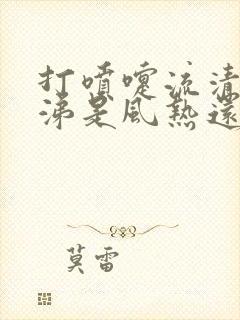 打噴嚏流清
涕是風熱還
莫雷